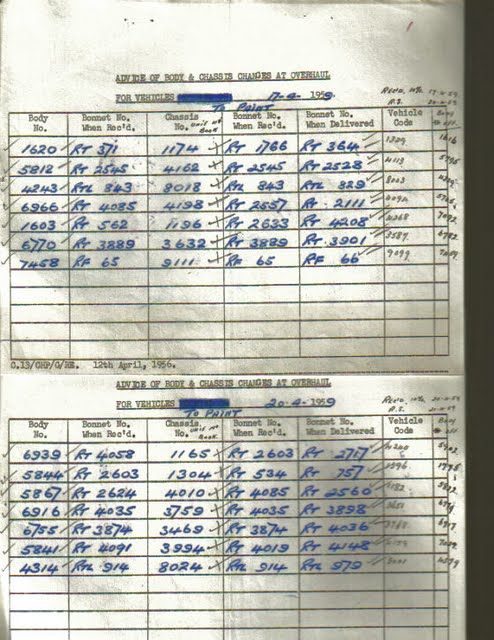 ADVICE OF BODY & CHASSIS CHANGES AT OVERHAUL
FOR VEHICLES 17-4-1959
TO PAINT
Body No. Bonnet No. When Rec'd. Chassis No. Unit No Book Bonnet No. When Rec'd. Bonnet No. When Delivered Vehicle Code Body
1620 RT 371 1174 RT 1766 RT 364 1616
5812 RT 2545 4162 RT 2545 RT 2528 4113
4243 RTL 843 8018 RTL 843 RTL 829 8003
6966 RT 4085 4198 RT 2557 RT 2111
1603 RT 562 1196 RT 2633 RT 4208
6770 RT 3889 3632 RT 3889 RT 3901 3587
7458 RF 65 9111 RF 65 RF 66 9099
C.13/CHP/G/HE. 12th April, 1956.
ADVICE OF BODY & CHASSIS CHANGES AT OVERHAUL
FOR VEHICLES 20-4-1959
TO PAINT
Body No. Bonnet No. When Rec'd. Chassis No. Unit No Book Bonnet No. When Rec'd. Bonnet No. When Delivered Vehicle Code Body
6939 RT 4058 1165 RT 2603 RT 2717
5844 RT 2603 1304 RT 534 RT 757
5867 RT 2624 4010 RT 4085 RT 2560
6916 RT 4035 3759 RT 4035 RT 3898
6755 RT 3874 3469 RT 3874 RT 4036
5841 RT 4091 3994 RT 4019 RT 4148
4314 RTL 914 8024 RTL 914 RTL 979